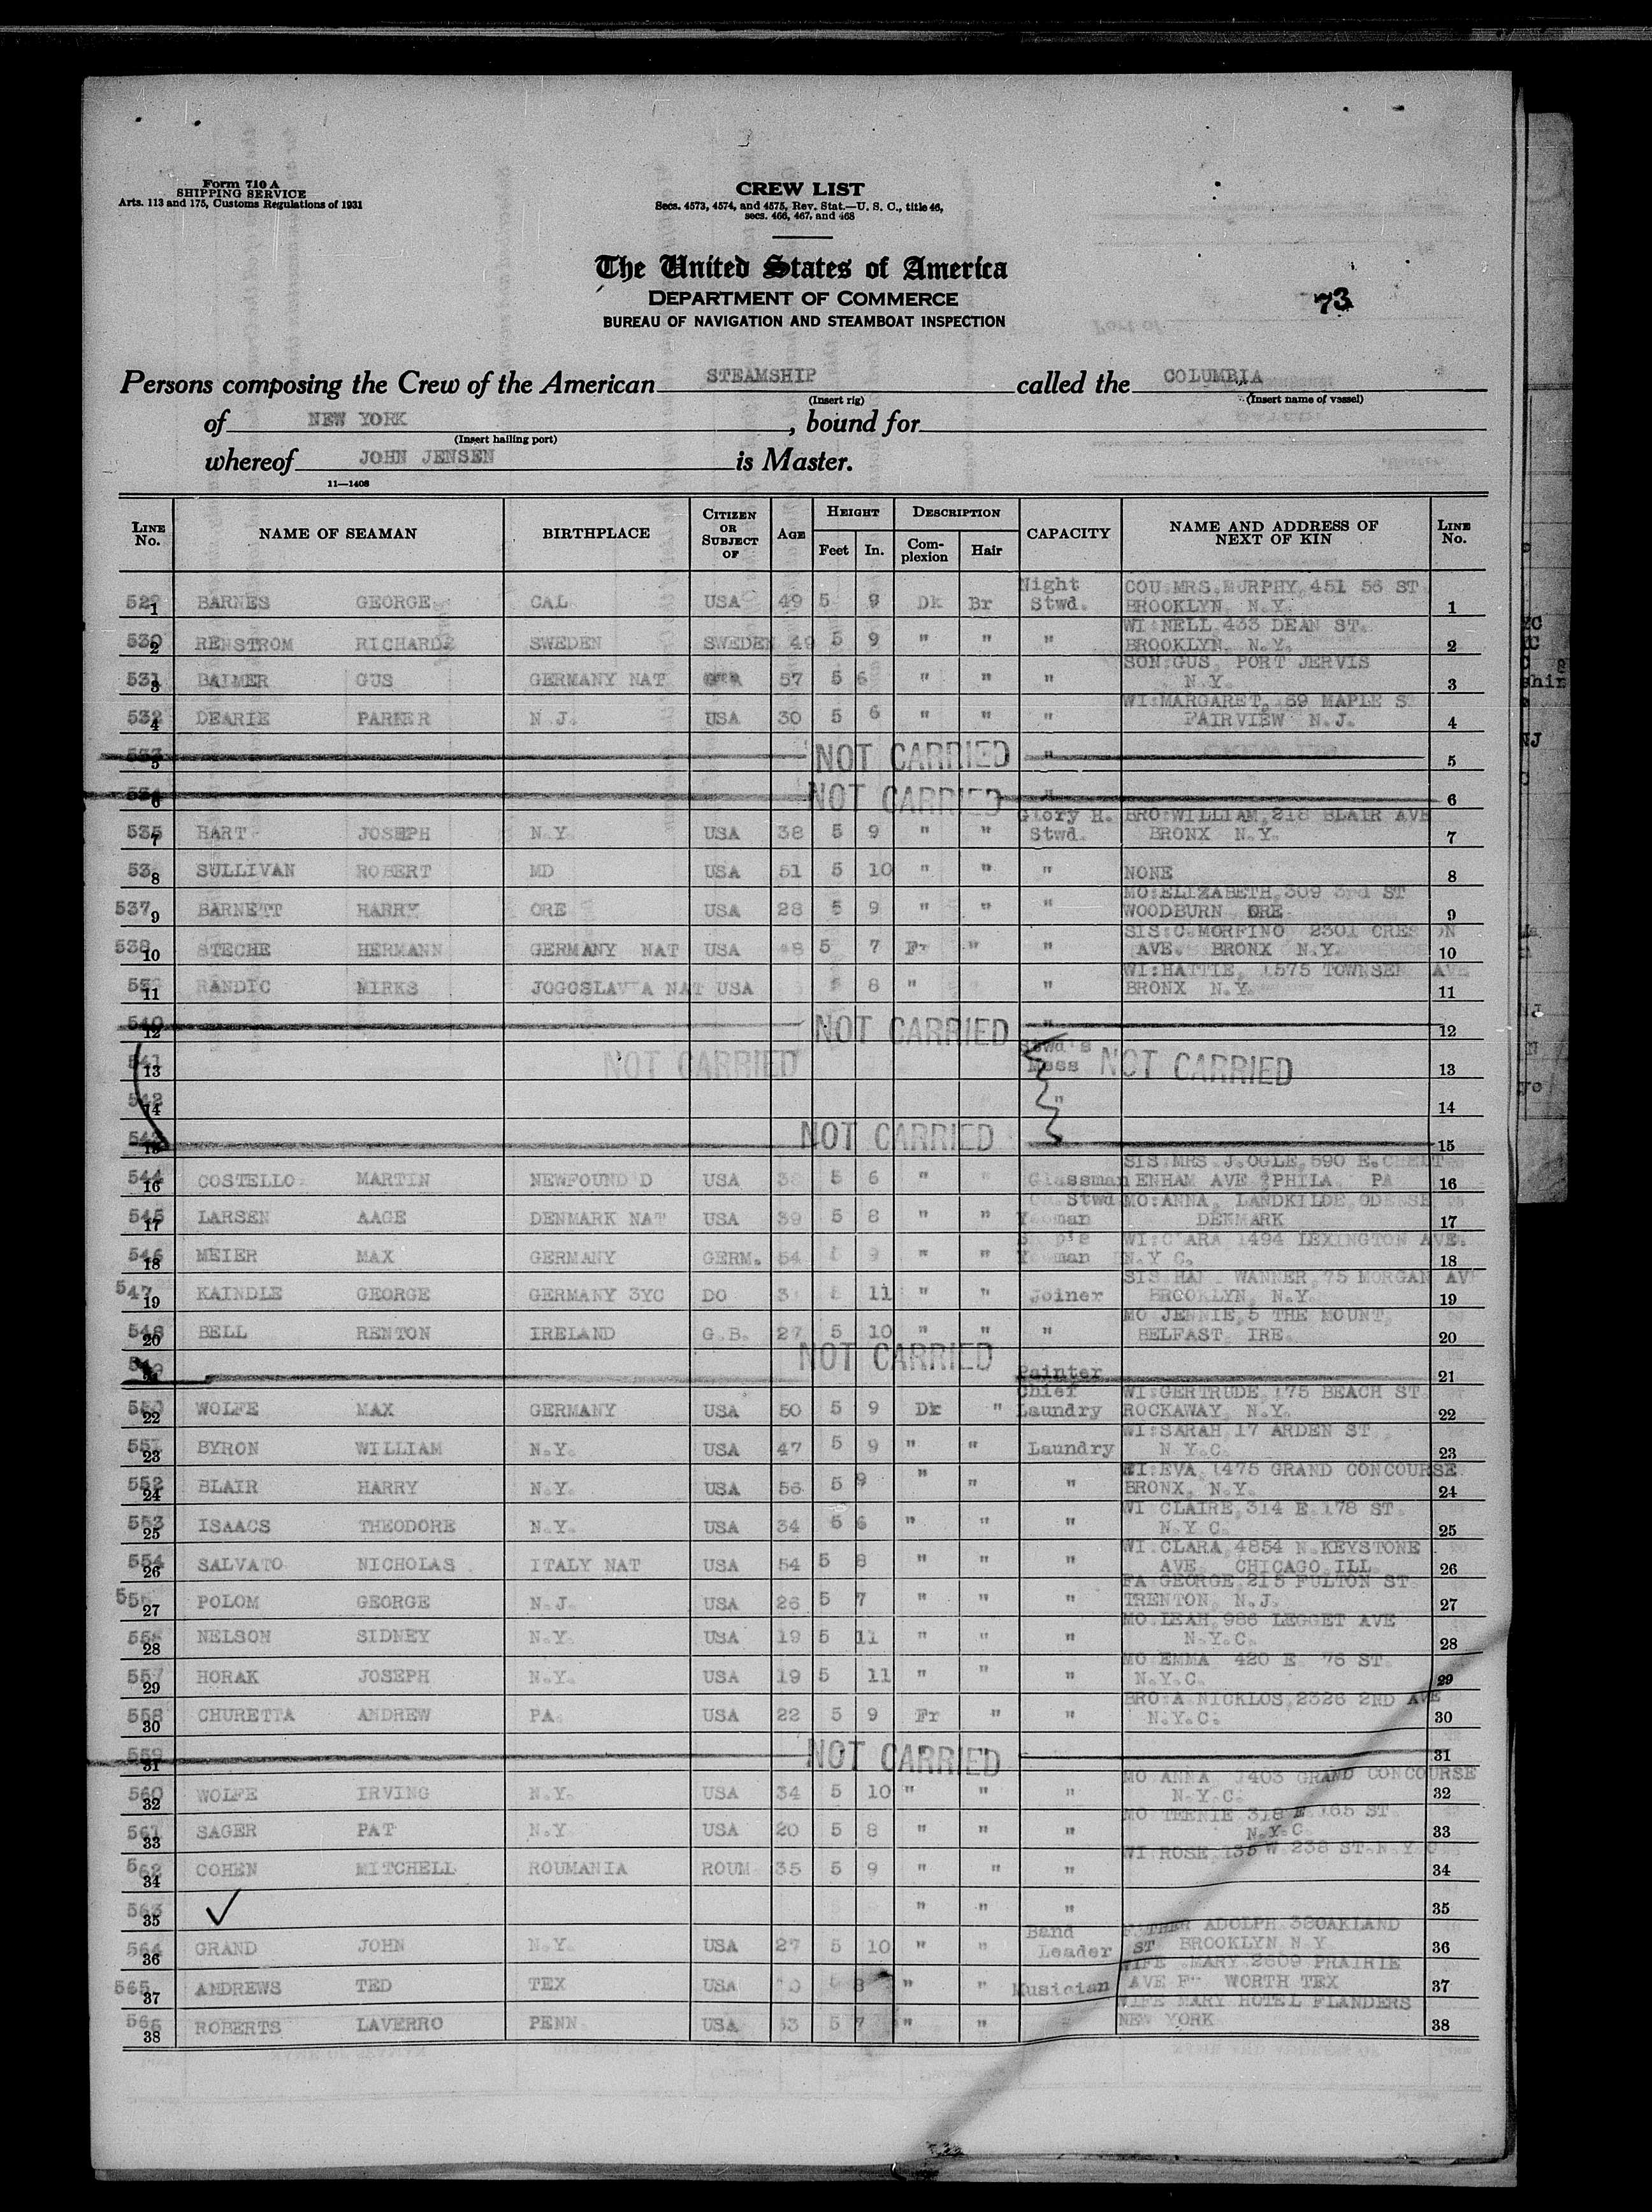 Form 710 A
SHIPPING SERVICE
Arts. 113 and 175, Customs Regulations of 1931
CREW LIST
Secs. 4573, 4574, and 4575, Rev. Stat.—U. S. C., title 46,
secs. 466, 467, and 468
The United States of America
DEPARTMENT OF COMMERCE
BUREAU OF NAVIGATION AND STEAMBOAT INSPECTION
73
Persons composing the Crew of the American STEAMSHIP called the COLUMBIA
(Insert rig) (Insert name of vessel)
of NEW YORK, bound for
(Insert hailing port)
whereof JOHN JENSEN is Master.
11—1408
LINE No. NAME OF SEAMAN BIRTHPLACE CITIZEN OR SUBJECT OF AGE HEIGHT Feet In. DESCRIPTION Complexion Hair CAPACITY NAME AND ADDRESS OF NEXT OF KIN LINE No.
529 1 BARNES GEORGE CAL USA 49 5 9 Dk Br Night Stwd. COU MRS. MURPHY, 451 56 ST BROOKLYN N.Y. 1
530 2 RENSTROM RICHARD SWEDEN SWEDEN 49 5 9 " " " WI:NELL 433 DEAN ST. BROOKLYN, N.Y. 2
531 3 BALMER GUS GERMANY NAT 57 5 6 " " " SON:GUS, PORT JERVIS N.Y. 3
532 4 DEARIE PARKER N.J. USA 30 5 6 " " " WI:MARGARET, 59 MAPLE S FAIRVIEW N.J. 4
533 5 NOT CARRIED " 5
534 6 NOT CARRIED " 6
535 7 HART JOSEPH N.Y. USA 38 5 9 " " Glory H. Stwd. BRO:WILLIAM, 218 BLAIR AVE BRONX N.Y. 7
53 8 SULLIVAN ROBERT MD USA 51 5 10 " " " NONE 8
537 9 BARNETT HARRY ORE USA 28 5 9 " " " MO:ELIZABETH, 309 3rd ST WOODBURN ORE 9
538 10 STECHE HERMANN GERMANY NAT USA 5 7 Fr " " SIS:C. MORFINO 2301 CRES ON AVE. BRONX N.Y. 10
11 RANDIC MIRKS JOGOSLAVIA NAT USA 8 " " WI:HATTIE, 1575 TOWNSEN AVE BRONX N.Y. 11
540 12 NOT CARRIED " 12
541 13 NOT CARRIED Stwd's Mess NOT CARRIED 13
542 14 " 14
543 15 NOT CARRIED 15
544 16 COSTELLO MARTIN NEWFOUND D USA 5 6 " " Glassman SIS:MRS. J. OGLE, 590 E. CHELT ENHAM AVE PHILA. PA 16
545 17 LARSEN AAGE DENMARK NAT USA 39 5 8 " " Stwd MO:ANNA, LANDKILDE, ODENSE DENMARK 17
546 18 MEIER MAX GERMANY GERM. 54 9 " " WI:CLARA 1494 LEXINGTON AVE. N.Y.C. 18
547 19 KAINDLE GEORGE GERMANY 3YC DO 11 " " Joiner SIS WANNER, 75 MORGAN AV BROOKLYN, N.Y. 19
548 20 BELL RENTON IRELAND G.B. 27 5 10 " " " MO JENNIE, 5 THE MOUNT, BELFAST, IRE. 20
NOT CARRIED Painter 21
550 22 WOLFE MAX GERMANY USA 50 5 9 Dk " Chief Laundry WI:GERTRUDE 175 BEACH ST. ROCKAWAY, N.Y. 22
551 23 BYRON WILLIAM N.Y. USA 47 5 9 " " Laundry WI:SARAH, 17 ARDEN ST N.Y.C. 23
552 24 BLAIR HARRY N.Y. USA 56 5 9 " " " WI:EVA, 1475 GRAND CONCOURSE BRONX, N.Y. 24
553 25 ISAACS THEODORE N.Y. USA 34 5 6 " " " WI CLAIRE, 314 E. 178 ST. N.Y.C. 25
554 26 SALVATO NICHOLAS ITALY NAT USA 54 5 8 " " " WI.CLARA, 4854 N.KEYSTONE AVE CHICAGO ILL. 26
55 27 POLOM GEORGE N.J. USA 26 5 7 " " " FA GEORGE, 215 FULTON ST. TRENTON, N.J. 27
556 28 NELSON SIDNEY N.Y. USA 19 5 11 " " " MO.LEAH, 986 LEGGET AVE N.Y.C. 28
557 29 HORAK JOSEPH N.Y. USA 19 5 11 " " " MO EMMA 420 E. 76 ST. N.Y.C. 29
558 30 CHURETTA ANDREW PA. USA 22 5 9 Fr " " BRO:A NICKLOS, 2326 2ND AVE N.Y.C. 30
559 31 NOT CARRIED 31
560 32 WOLFE IRVING N.Y. USA 34 5 10 " " " MO ANNA 1403 GRAND CONCOURSE N.Y.C. 32
561 33 SAGER PAT N.Y. USA 20 5 8 " " " MO TEENIE 318 E 165 ST. N.Y.C. 33
562 34 COHEN MITCHELL ROUMANIA ROUM 35 5 9 " " " WI ROSE, 135 W 238 ST. N.Y.C 34
563 35 ✓ " " " 35
564 36 GRAND JOHN N.Y. USA 27 5 10 " " Band Leader ADOLPH 38OAKLAND ST BROOKLYN N Y 36
565 37 ANDREWS TED TEX USA 5 8 " " Musician WIFE MARY 2609 PRAIRIE AVE WORTH TEX 37
566 38 ROBERTS LAVERRO PENN USA 5 7 " " WIFE MARY HOTEL FLANDERS NEW YORK 38